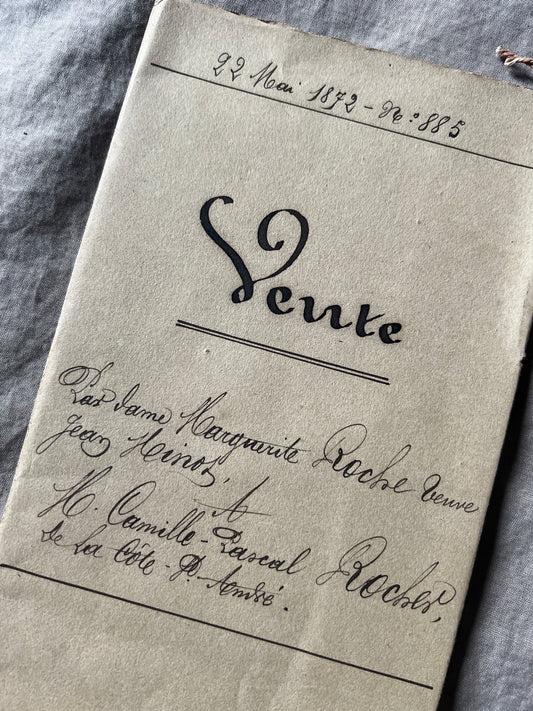 22 Mai 1872 - N:º 885
Vente
Par dame Marguerite Roche veuve
Jean Minot,
A
M. Camille-Pascal Rocher,
de la Côte-St-André.